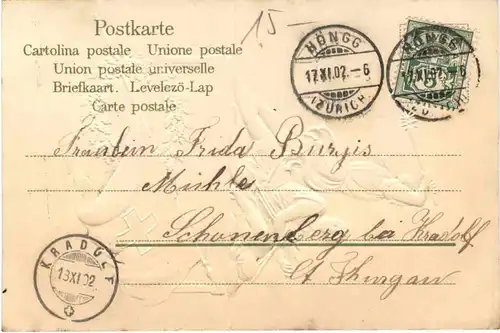 Postkarte
15.—
Cartolina postale Unione postale
Union postale universelle
Briefkaart. Levelezö-Lap
Carte postale
HÖNGG
17.XI.02.–6
(ZÜRICH)
HÖNGG
17.XI.02.–6
Fräulein Frida
Mühle
Schönenberg bei Kradolf
Ct. Thurgau
KRADOLF
18.XI.02